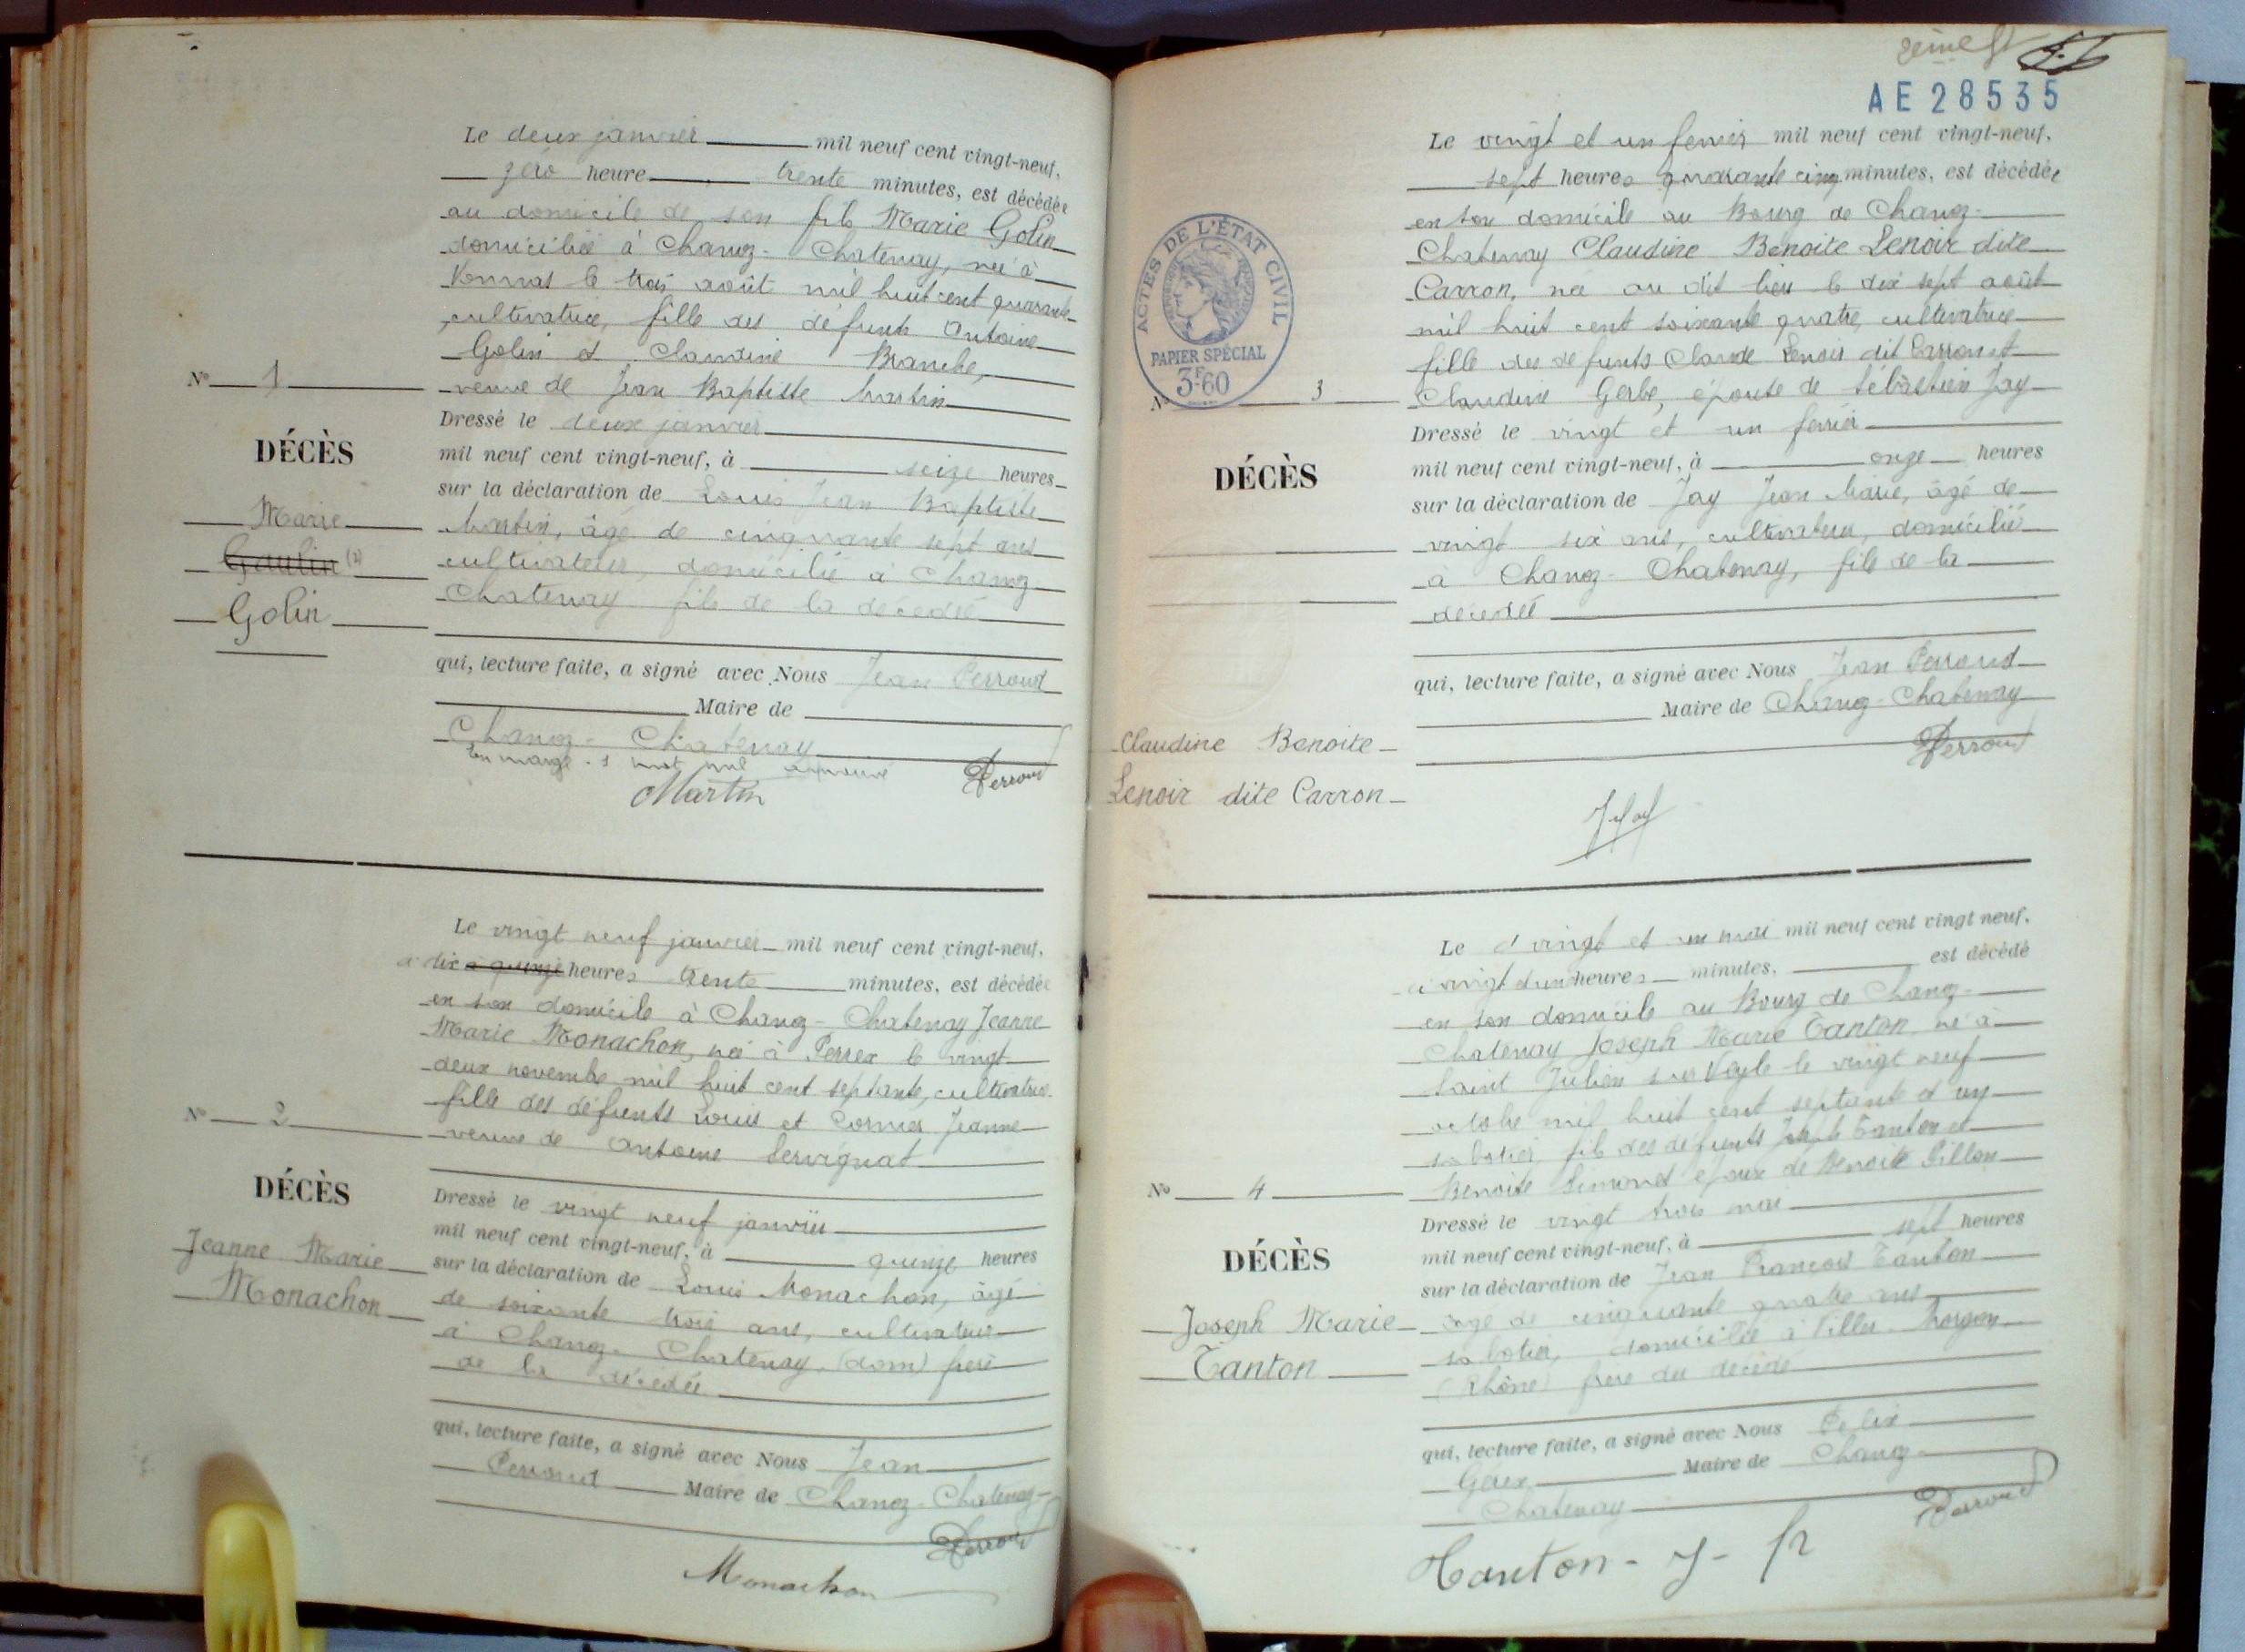 Le deux janvier mil neuf cent vingt-neuf,
zéro heure trente minutes, est décédée
au domicile de son fils Marie Golin
domiciliée à Chanoz-Chatenay, née à
Vonnas le trois août mil huit cent quarante
cultivatrice, fille des défunts Antoine
Golin et Claudine Branche,
veuve de Jean Baptiste Martin
Dressé le deux janvier
mil neuf cent vingt-neuf, à seize heures
sur la déclaration de Louis Jean Baptiste
Martin, âgé de cinquante sept ans
cultivateur, domicilié à Chanoz-
Chatenay fils de la décédée
qui, lecture faite, a signé avec Nous Jean Perroud
Maire de
Chanoz-Chatenay
En marge 1 mot nul approuvé
Martin Perroud
N° 1
DÉCÈS
Marie
Gaulin (1)
Golin
Le vingt neuf janvier mil neuf cent vingt-neuf,
à dix à quinze heures trente minutes, est décédée
en son domicile à Chanoz-Chatenay Jeanne
Marie Monachon, née à Perrex le vingt
deux novembre mil huit cent septante, cultivatrice
fille des défunts Louis et Cornier Jeanne
veuve de Antoine Servignat
Dressé le vingt neuf janvier
mil neuf cent vingt-neuf, à quinze heures
sur la déclaration de Louis Monachon, âgé
de soixante trois ans, cultivateur
à Chanoz-Chatenay, (dom) frère
de la décédée
qui, lecture faite, a signé avec Nous Jean
Perroud Maire de Chanoz-Chatenay
Perroud
Monachon
N° 2
DÉCÈS
Jeanne Marie
Monachon
AE 28535
Le vingt et un fevrier mil neuf cent vingt-neuf,
sept heures quarante cinq minutes, est décédée
en son domicile au Bourg de Chanoz-
Chatenay Claudine Benoite Lenoir dite
Carron, née au dit lieu le dix sept août
mil huit cent soixante quatre, cultivatrice
fille des défunts Claude Lenoir dit Carron et
Claudine Gerbe, épouse de Sébastien Jay
Dressé le vingt et un fevrier
mil neuf cent vingt-neuf, à onze heures
sur la déclaration de Jay Jean Marie, âgé de
vingt six ans, cultivateur, domicilié
à Chanoz-Chatenay, fils de la
décédée
qui, lecture faite, a signé avec Nous Jean Perroud
Maire de Chanoz-Chatenay
Perroud
ACTES DE L'ÉTAT CIVIL
RÉPUBLIQUE FRANÇAISE
PAPIER SPÉCIAL
3F.60
N° 3
DÉCÈS
Claudine Benoite
Lenoir dite Carron
Le vingt et un mai mil neuf cent vingt neuf,
à vingt d'un heures minutes, est décédé
en son domicile au Bourg de Chanoz-
Chatenay Joseph Marie Tanton né à
Saint Julien sur Veyle le vingt neuf
octobre mil huit cent septante et un
sabotier, fils des défunts Joseph Tanton et
Benoite Simonet époux de Benoite Pillon
Dressé le vingt trois mai
mil neuf cent vingt-neuf, à sept heures
sur la déclaration de Jean François Tanton
âgé de cinquante quatre ans
sabotier, domicilié à Villié-Morgon
(Rhône) frère du décédé
qui, lecture faite, a signé avec Nous Félix
Gerex Maire de Chanoz-
Chatenay
Perroud
Tanton - J - fr
N° 4
DÉCÈS
Joseph Marie
Tanton